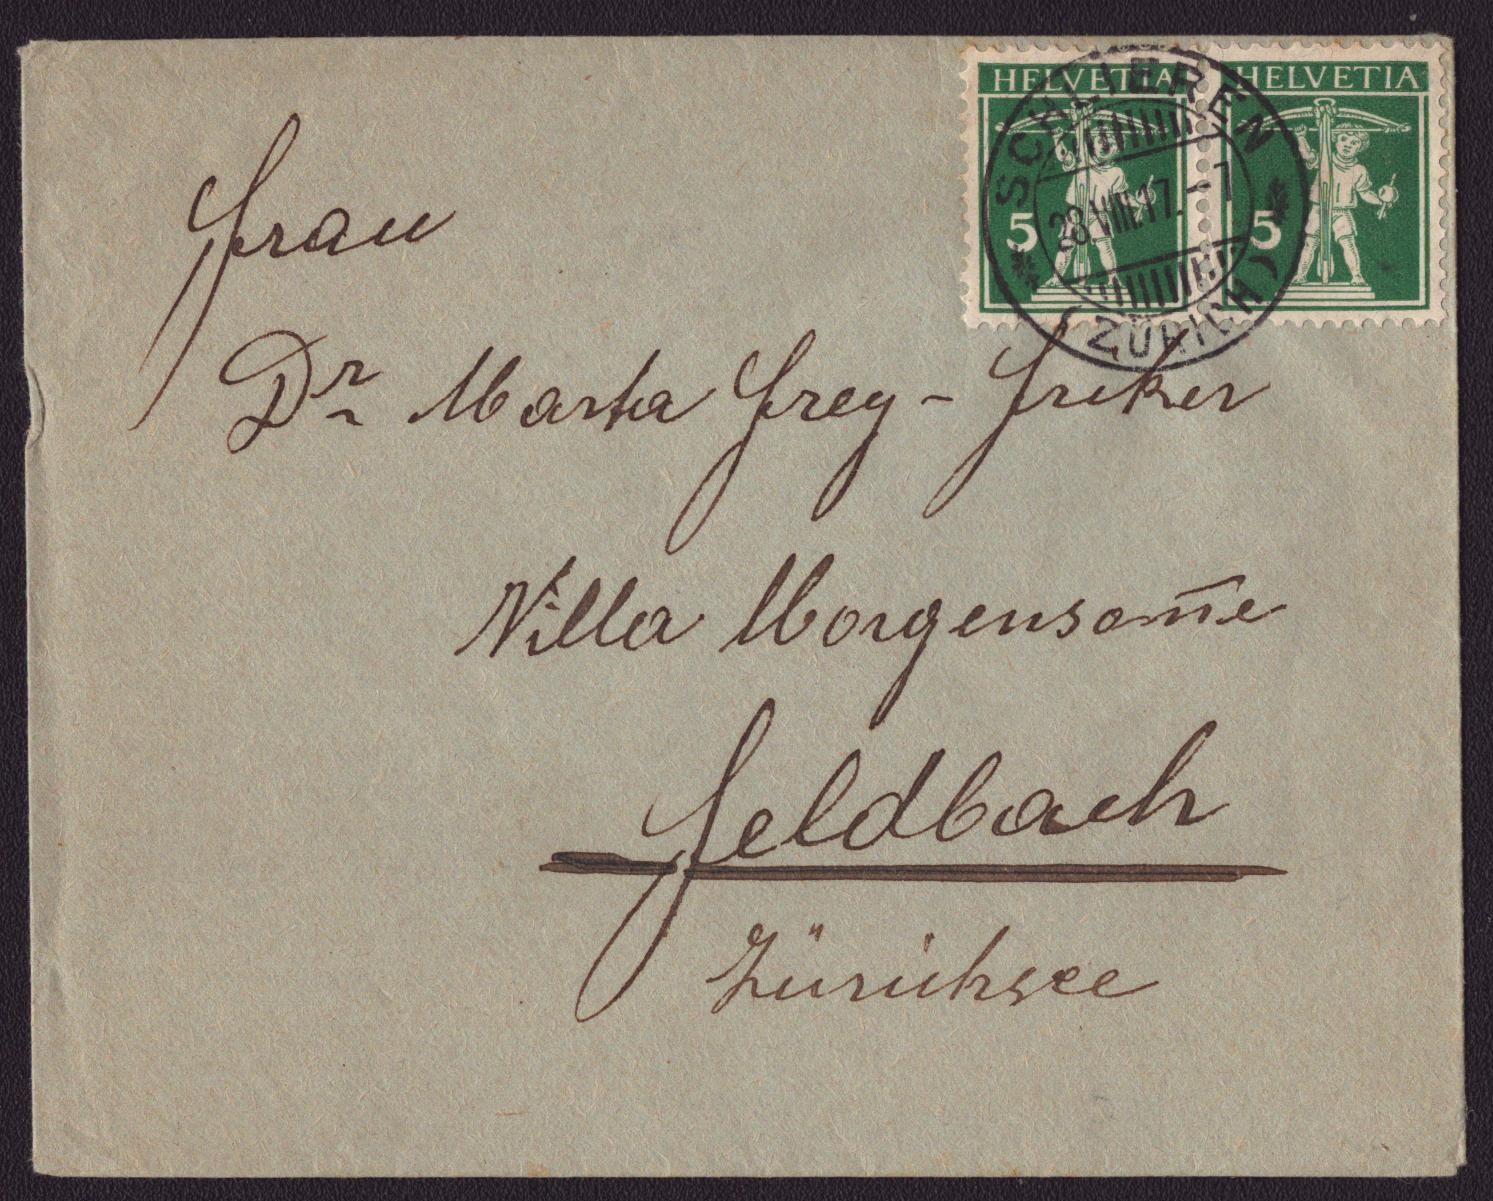 HELVETIA HELVETIA
5 5
SCHLIEREN
28.VIII.17.-7
(ZÜRICH)
Frau
Dr. Marta Frey - Friker
Villa Morgensonne
Feldbach
Zürichsee